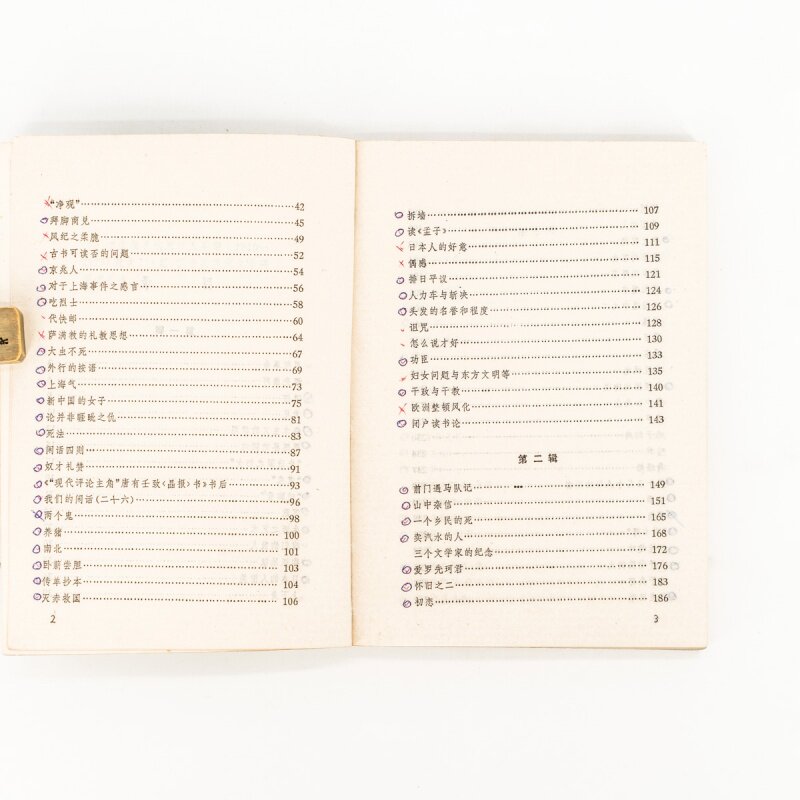 “净观”……42
拜脚商兑……45
风纪之柔脆……49
古书可读否的问题……52
京兆人……54
对于上海事件之感言……56
吃烈士……58
代快邮……60
萨满教的礼教思想……64
大虫不死……67
外行的按语……69
上海气……73
新中国的女子……75
论并非睚眦之仇……81
死法……83
闲话四则……87
奴才礼赞……91
《“现代评论主角”唐有壬致《晶报》书》书后……93
我们的闲话(二十六)……96
两个鬼……98
养猪……100
南北……101
卧薪尝胆……103
传单抄本……104
灭赤救国……106
2
拆墙……107
读《孟子》……109
日本人的好意……111
偶感……115
排日平议……121
人力车与斩决……124
头发的名誉和程度……126
诅咒……128
怎么说才好……130
功臣……133
妇女问题与东方文明等……135
干政与干教……140
欧洲整顿风化……141
闭户读书论……143
第二辑
前门遇马队记……149
山中杂信……151
一个乡民的死……165
卖汽水的人……168
三个文学家的纪念……172
爱罗先珂君……176
怀旧之二……183
初恋……186
3